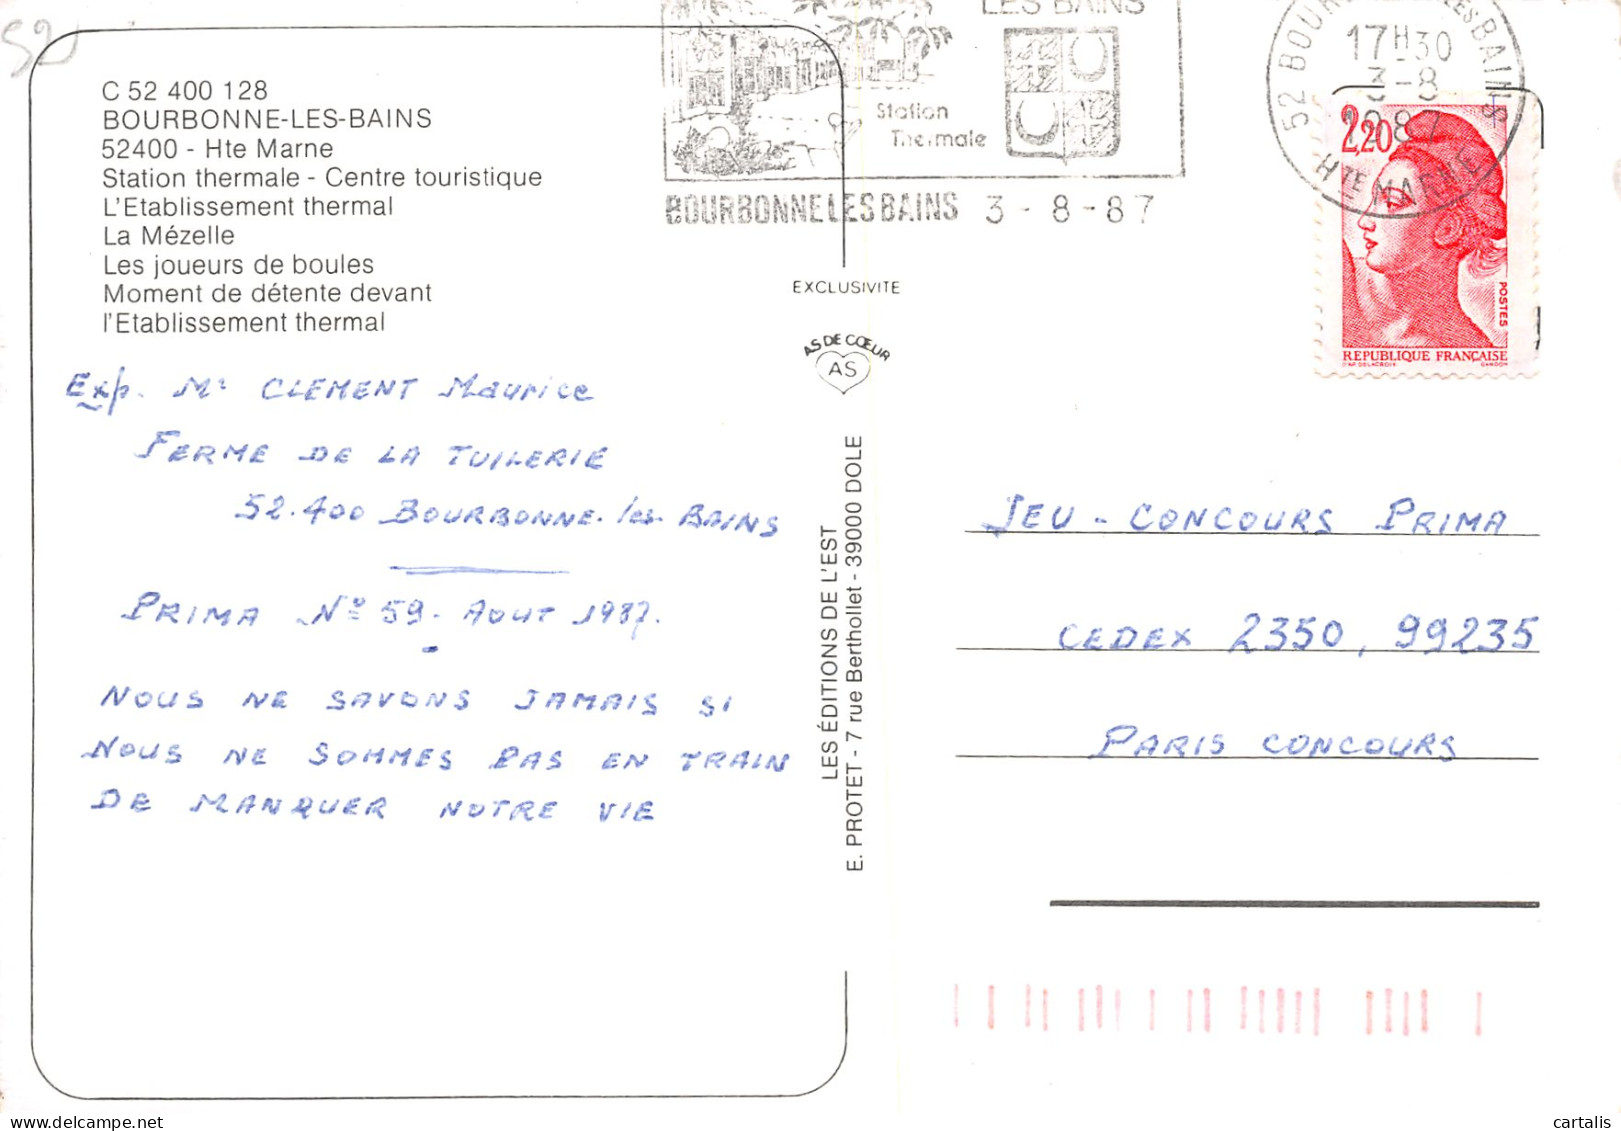 52
C 52 400 128
BOURBONNE-LES-BAINS
52400 - Hte Marne
Station thermale - Centre touristique
L'Etablissement thermal
La Mézelle
Les joueurs de boules
Moment de détente devant
l'Etablissement thermal
Exp. Mr CLEMENT Maurice
FERME DE LA TUILERIE
52.400 BOURBONNE-les-BAINS
PRIMA N° 59 - AOUT 1987.
NOUS NE SAVONS JAMAIS SI
NOUS NE SOMMES PAS EN TRAIN
DE MANQUER NOTRE VIE
LES BAINS
Station
Thermale
BOURBONNE LES BAINS 3 - 8 - 87
EXCLUSIVITE
AS DE CŒUR
AS
LES ÉDITIONS DE L'EST
E. PROTET - 7 rue Berthollet - 39000 DOLE
17H30
3-8
1987
HTE MARNE
2,20
POSTES
REPUBLIQUE FRANÇAISE
D'AP. DELACROIX
GANDON
JEU - CONCOURS PRIMA
CEDEX 2350, 99235
PARIS CONCOURS
cartalis